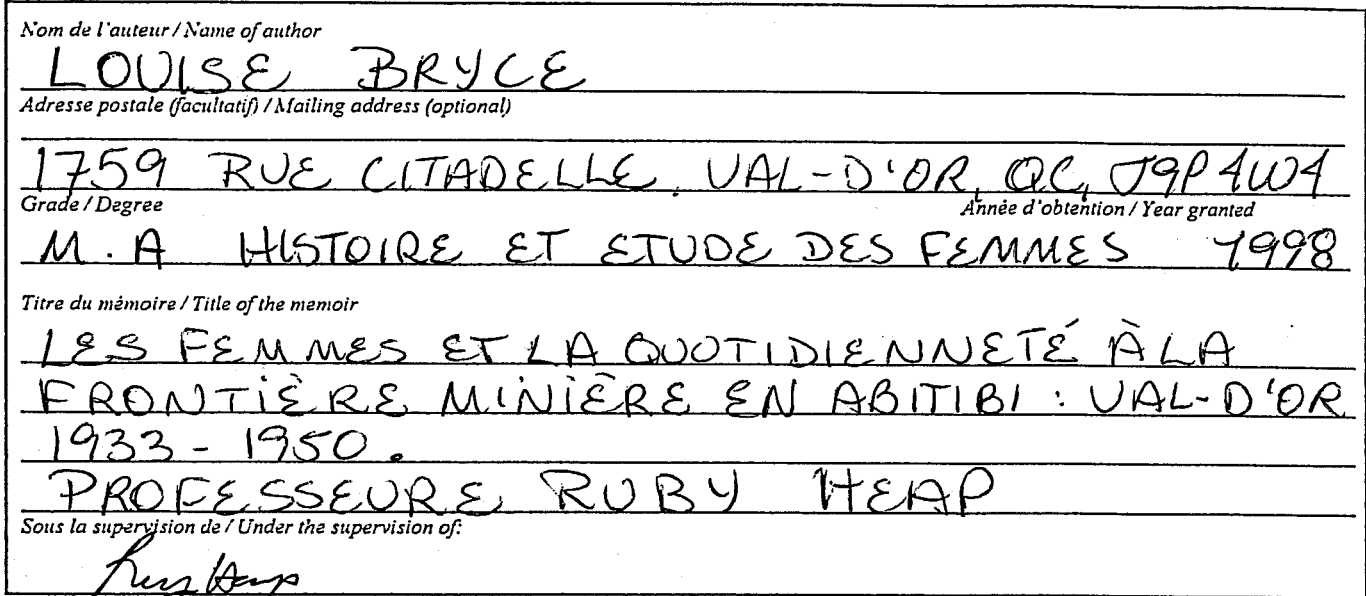 Nom de l'auteur / Name of author
LOUISE BRYCE
Adresse postale (facultatif) / Mailing address (optional)
1759 RUE CITADELLE, VAL-D'OR, QC, J9P 4W4
Grade / Degree Année d'obtention / Year granted
M.A HISTOIRE ET ETUDE DES FEMMES 1998
Titre du mémoire / Title of the memoir
LES FEMMES ET LA QUOTIDIENNETÉ À LA
FRONTIÈRE MINIÈRE EN ABITIBI : VAL-D'OR
1933 - 1950.
PROFESSEURE RUBY HEAP
Sous la supervision de / Under the supervision of: